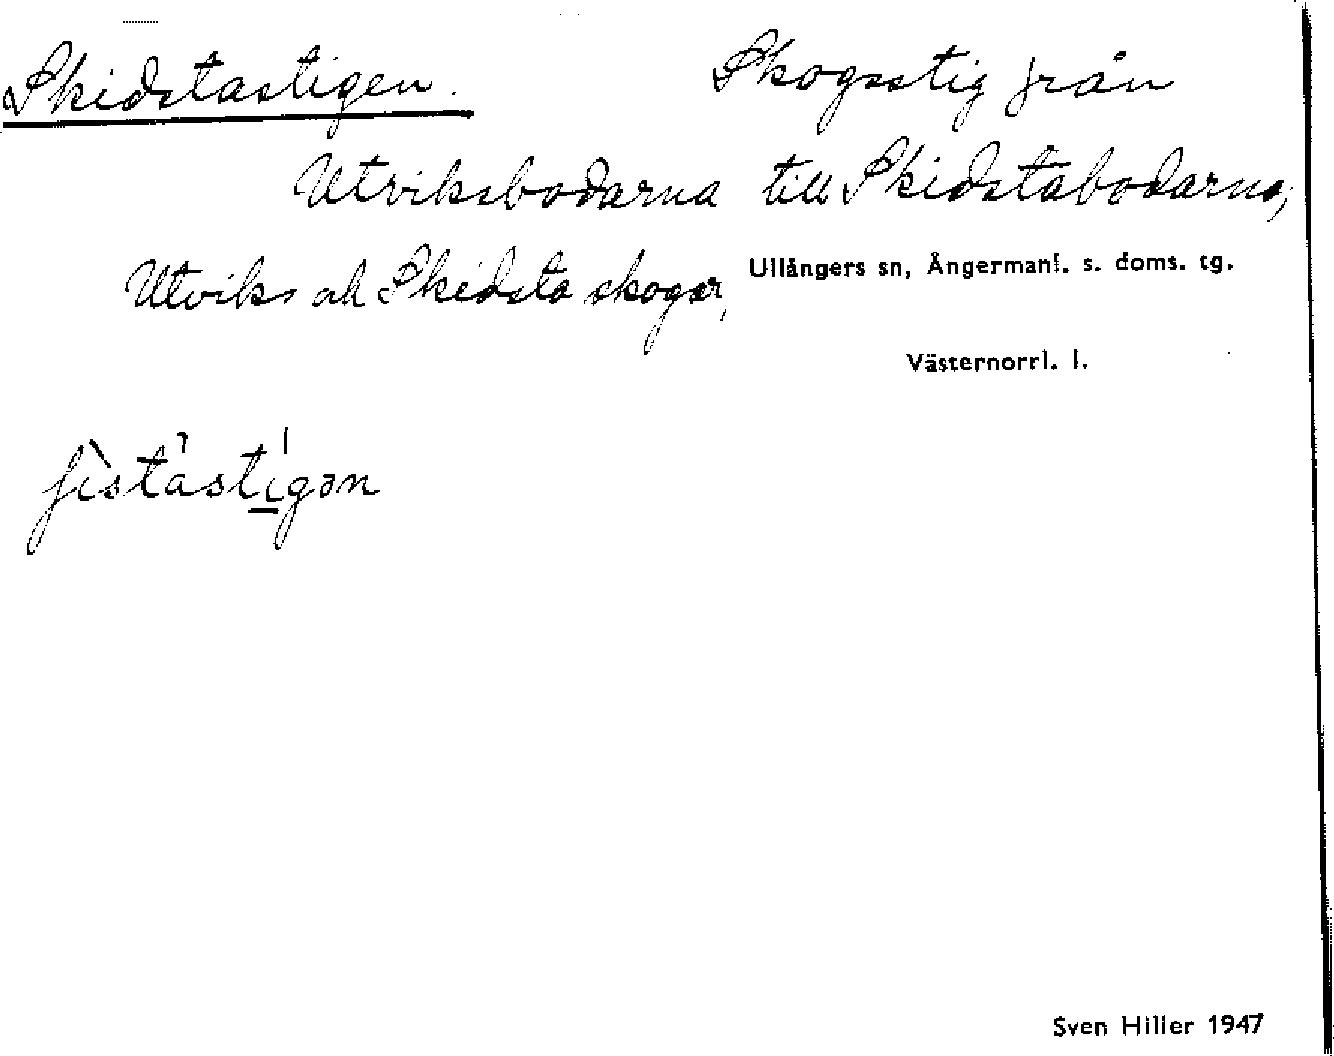 Skidstastigen. Skogsstig från
Utviksbodarna till Skidstabodarna,
Utviks och Skidsta skogar,
Ullångers sn, Ångermanl. s. doms. tg.
Västernorrl. l.
Sven Hiller 1947